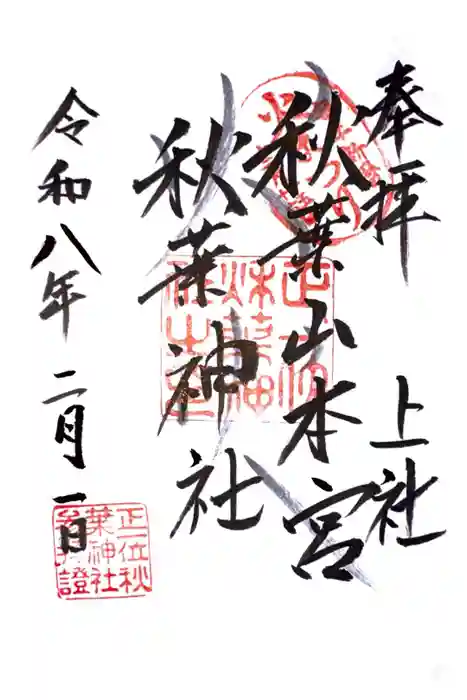 奉拝 上社
秋葉山本宮
秋葉神社
令和八年 二月一日
正一位秋
葉神社
證